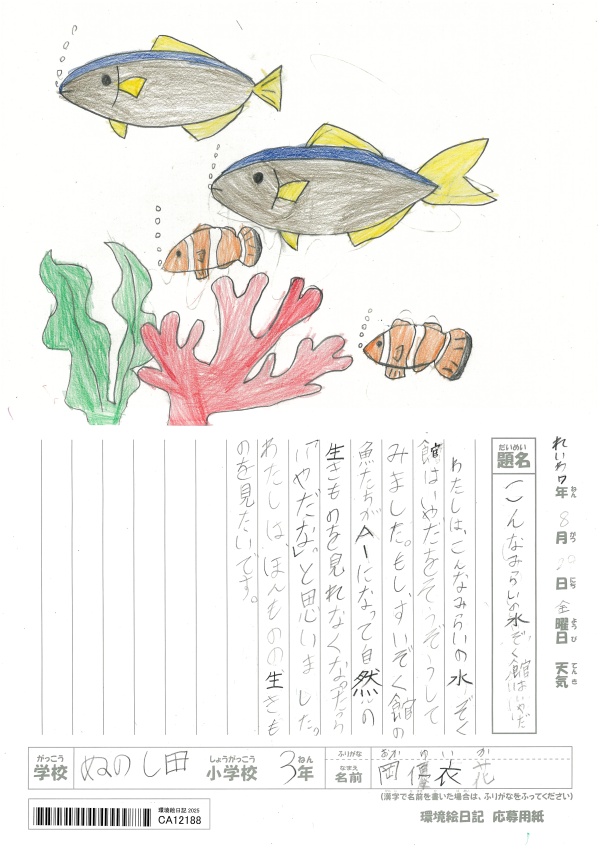 れいわ7年 8月 日 金曜日 天気
ねん がつ にち ようび てんき
題名 こんなみらいの水ぞく館はいやだ
だいめい
わたしは、こんなみらいの水ぞく
館はいやだをそうぞうして
みました。もし、すいぞく館の
魚たちがAIになって自然の
生きものを見れなくなったら
「いやだな。」と思いました。
わたしは、ほんものの生きも
のを見たいです。
がっこう しょうがっこう ねん ふりがな おか ゆ い か
学校 ぬのし田 小学校 3年 なまえ 名前 岡 優衣花
(漢字で名前を書いた場合は、ふりがなをふってください)
環境絵日記 2025
CA12188
環境絵日記 応募用紙